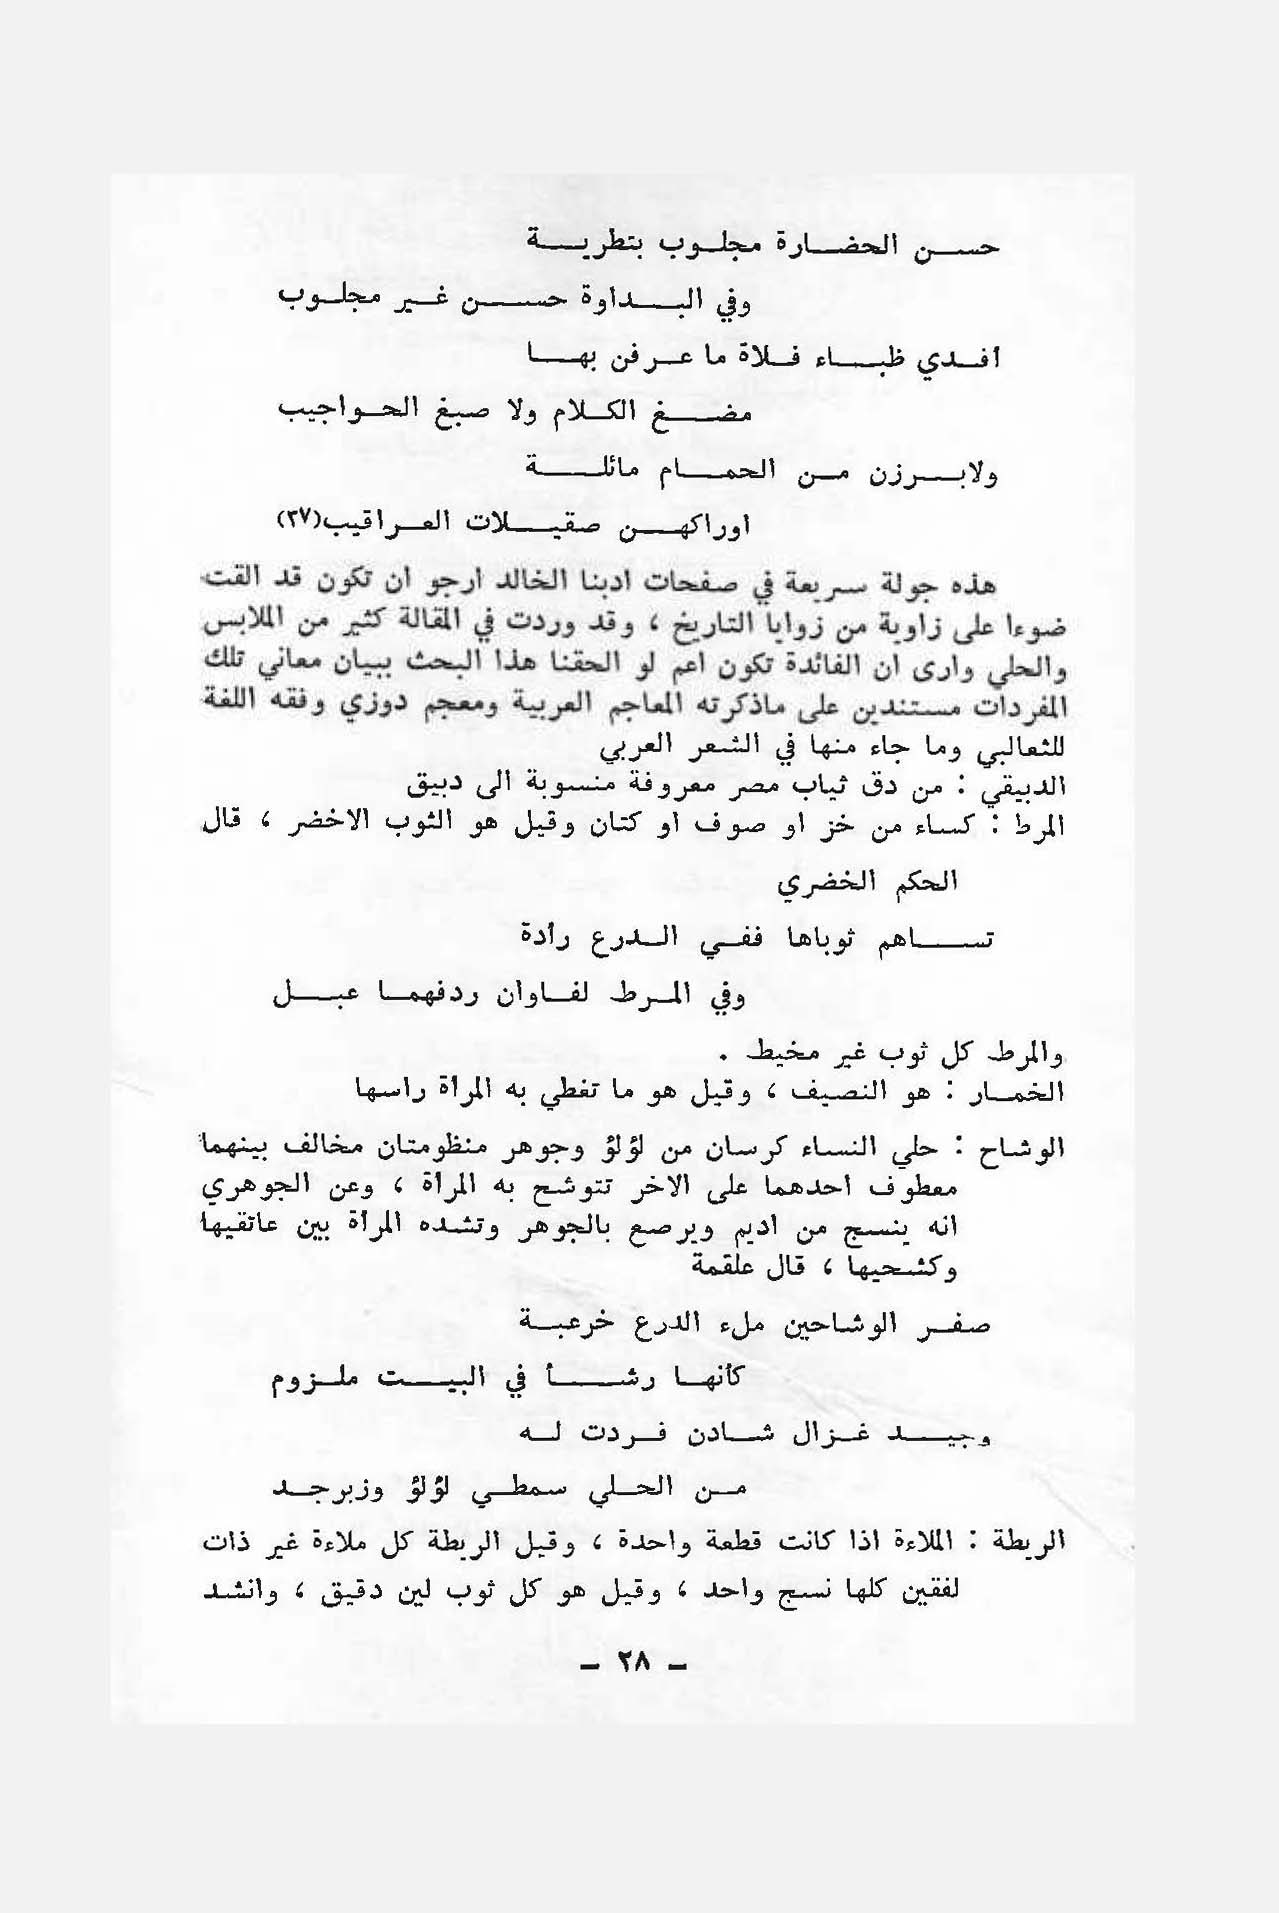 حسن الحضارة مجلوب بتطرية
وفي البداوة حسن غير مجلوب
أفدي ظباء فلاة ما عرفن بها
مضغ الكلام ولا صبغ الحواجيب
ولابرزن من الحمام مائلة
اوراكهن صقيلات العراقيب(٣٧)
هذه جولة سريعة في صفحات ادبنا الخالد ارجو ان تكون قد القت
ضوءا على زاوية من زوايا التاريخ ، وقد وردت في المقالة كثير من الملابس
والحلي وارى ان الفائدة تكون اعم لو الحقنا هذا البحث ببيان معاني تلك
المفردات مستندين على ماذكرته المعاجم العربية ومعجم دوزي وفقه اللغة
للثعالبي وما جاء منها في الشعر العربي
الدبيقي : من دق ثياب مصر معروفة منسوبة الى دبيق
المرط : كساء من خز او صوف او كتان وقيل هو الثوب الاخضر ، قال
الحكم الخضري
تساهم ثوباها ففي الدرع رأدة
وفي المرط لفاوان ردفهما عبل
والمرط كل ثوب غير مخيط .
الخمار : هو النصيف ، وقيل هو ما تغطي به المرأة راسها
الوشاح : حلي النساء كرسان من لؤلؤ وجوهر منظومتان مخالف بينهما
معطوف احدهما على الاخر تتوشح به المرأة ، وعن الجوهري
انه ينسج من اديم ويرصع بالجوهر وتشده المرأة بين عاتقيها
وكشحيها ، قال علقمة
صفر الوشاحين ملء الدرع خرعبة
كأنها رشأ في البيت ملزوم
وجيد غزال شادن فردت له
من الحلي سمطي لؤلؤ وزبرجد
الريطة : الملاءة اذا كانت قطعة واحدة ، وقيل الريطة كل ملاءة غير ذات
لفقين كلها نسج واحد ، وقيل هو كل ثوب لين دقيق ، وانشد
– ٢٨ –